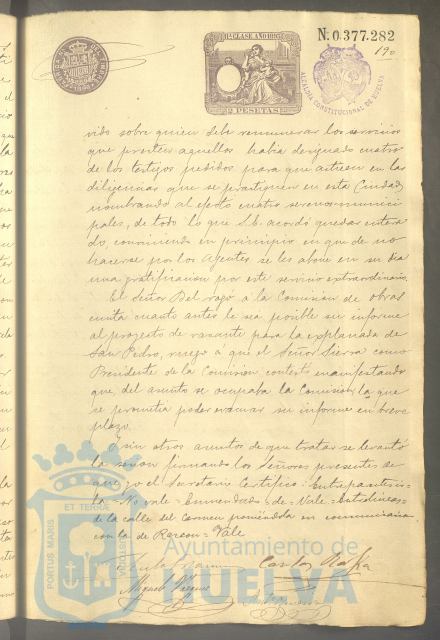 N. 0.377.282
190
11ª CLASE AÑO 1895
2 PESETAS
ALCALDIA CONSTITUCIONAL DE HUELVA
vido sobre quien debe remunerar los servicios
que prestan aquellos habia designado cuatro
de los testigos pedidos para que actuen en las
diligencias que se practiquen en esta Ciudad,
nombrando al efecto cuatro serenos munici
pales, de todo lo que S.E. acordó quedar entera
do, conviniendo en principio en que de no
hacerse por los Agentes se les abone en su dia
una gratificacion por este servicio extraordinario.
El Señor Del rogó à la Comision de obras
emita cuanto antes le sea posible su informe
al proyecto de rasante para la explanada de
San Pedro, ruego a que el Señor Sierra como
Presidente de la Comision contestó manifestando
que, del asunto se ocupaba la Comision, la que
se prometia poder evacuar su informe en breve
plazo.
Y sin otros asuntos de que tratar se levantó
la sesion firmando los Señores presentes de
que yo el Secretario Certifico: Entreparentesis=
la No vale= Enmendado= de= Vale= Entrelineas=
de la calle del Carmen poniéndola en comunicacion
con la de Rascon= Vale
Miguel Vazquez
PORTUS MARIS
ET TERRAE
CUSTODIA
Ayuntamiento de
HUELVA